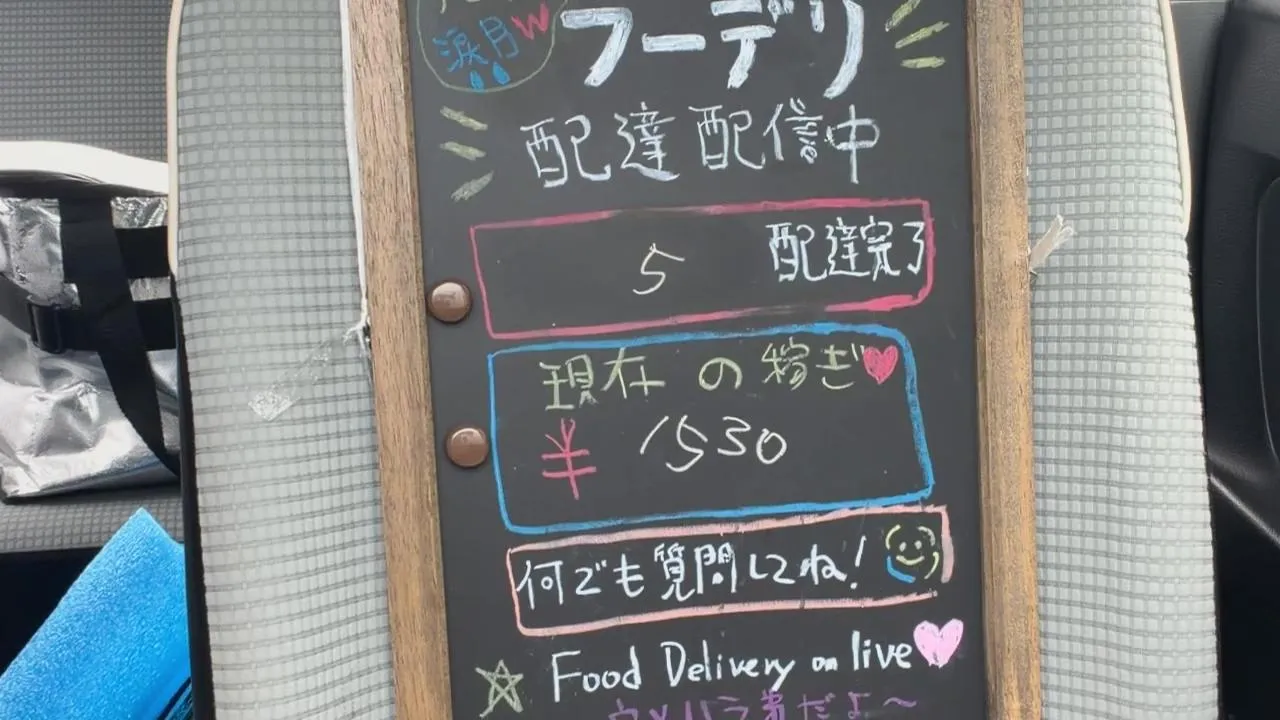 涙月W
フーデリ
配達配信中
5 配達完了
現在の稼ぎ
¥ 1530
何でも質問してね!
Food Delivery on live
だよ〜